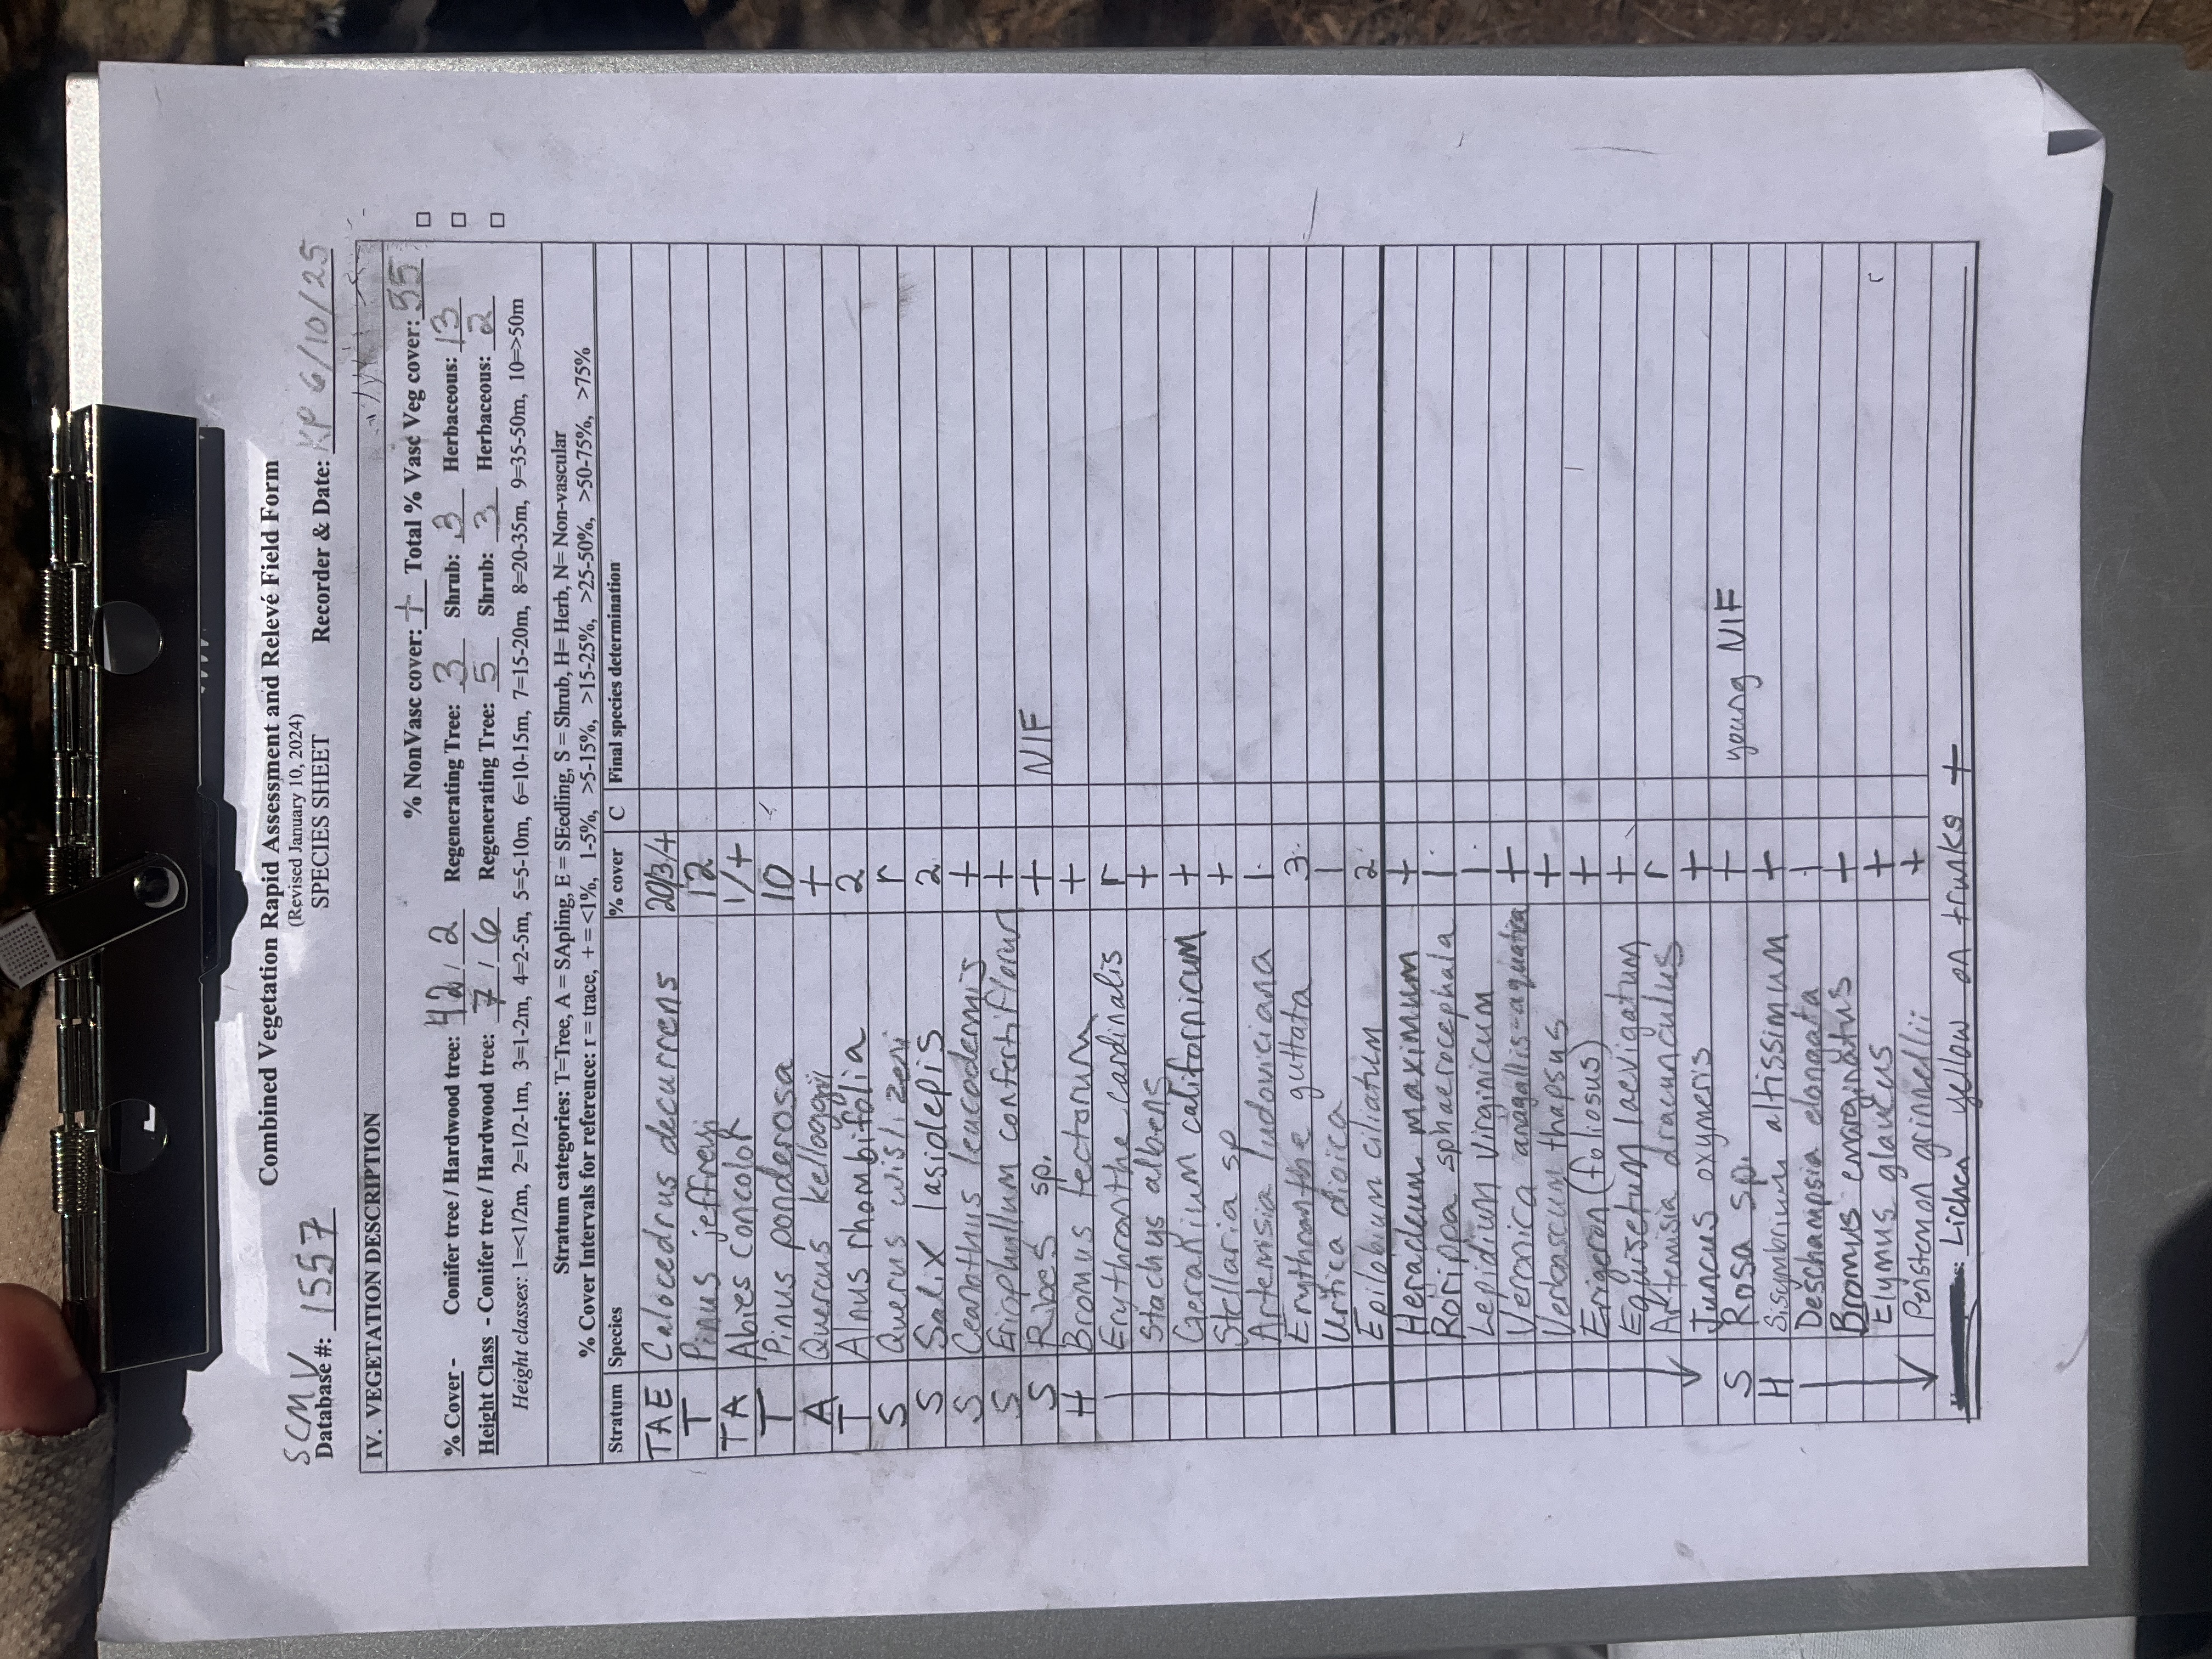 Combined Vegetation Rapid Assessment and Relevé Field Form
(Revised January 10, 2024)
SCMV
Database #: 1557 SPECIES SHEET Recorder & Date: KP 6/10/25
IV. VEGETATION DESCRIPTION
% NonVasc cover: + Total % Vasc Veg cover: 55
% Cover - Conifer tree / Hardwood tree: 42 / 2 Regenerating Tree: 3 Shrub: 3 Herbaceous: 13
Height Class - Conifer tree / Hardwood tree: 7 / 6 Regenerating Tree: 5 Shrub: 3 Herbaceous: 2
Height classes: 1=<1/2m, 2=1/2-1m, 3=1-2m, 4=2-5m, 5=5-10m, 6=10-15m, 7=15-20m, 8=20-35m, 9=35-50m, 10=>50m
Stratum categories: T=Tree, A = SApling, E = SEedling, S = Shrub, H= Herb, N= Non-vascular
% Cover Intervals for reference: r = trace, + = <1%, 1-5%, >5-15%, >15-25%, >25-50%, >50-75%, >75%
Stratum Species % cover C Final species determination
TAE Calocedrus decurrens 20/3/+
T Pinus jeffreyi 12
TA Abies concolor 1/+
T Pinus ponderosa 10
A Quercus kelloggii +
T Alnus rhombifolia 2
S Querus wislizeni r
S Salix lasiolepis 2
S Ceanothus leucodermis +
S Eriophyllum confertiflorum +
S Ribes sp. + NIF
H Bromus tectorum +
Erythranthe cardinalis r
Stachus albens +
Geranium californicum +
Stellaria sp +
Artemisia ludoviciana 1
Erythranthe guttata 3
Urtica dioica 1
Epilobium ciliatum 2
Heracleum maximum +
Rorippa sphaerocephala 1
Lepidium virginicum 1
Veronica anagallis-aquatica +
Verbascum thapsus +
Erigeron (foliosus) +
Equisetum laevigatum +
Artemisia dracunculus r
Juncus oxymeris +
S Rosa sp. + young NIF
H Sisymbrium altissimum +
Deschampsia elongata 1
Bromus emarginatus +
Elymus glaucus +
Penstemon grinnellii +
Lichen yellow on trunks +